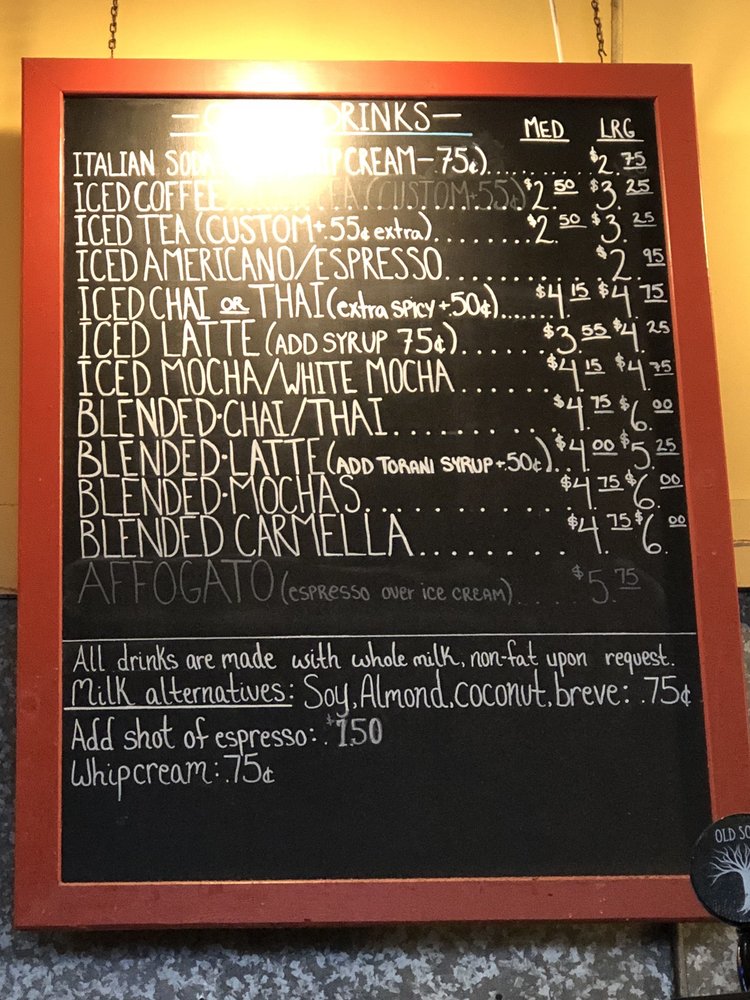 DRINKS— MED LRG
ITALIAN CREAM-75¢)....... $2.75
ICED COFFEE (CUSTOM+.55¢) $2.50 $3.25
ICED TEA (CUSTOM+.55¢ extra)....... $2.50 $3.25
ICED AMERICANO/ESPRESSO............ $2.95
ICED CHAI OR THAI (extra SPICY +.50¢)...... $4.15 $4.75
ICED LATTE (ADD SYRUP 75¢)........ $3.55 $4.25
ICED MOCHA/WHITE MOCHA...... $4.15 $4.75
BLENDED·CHAI/THAI........... $4.75 $6.00
BLENDED·LATTE (ADD TORANI SYRUP+.50¢)... $4.00 $5.25
BLENDED·MOCHAS............ $4.75 $6.00
BLENDED CARMELLA......... $4.75 $6.00
AFFOGATO (espresso over ice cream)..... $5.75
All drinks are made with whole milk, non-fat upon request.
Milk alternatives: Soy, Almond, coconut, breve: .75¢
Add shot of espresso: . $1.50
Whipcream: .75¢
OLD